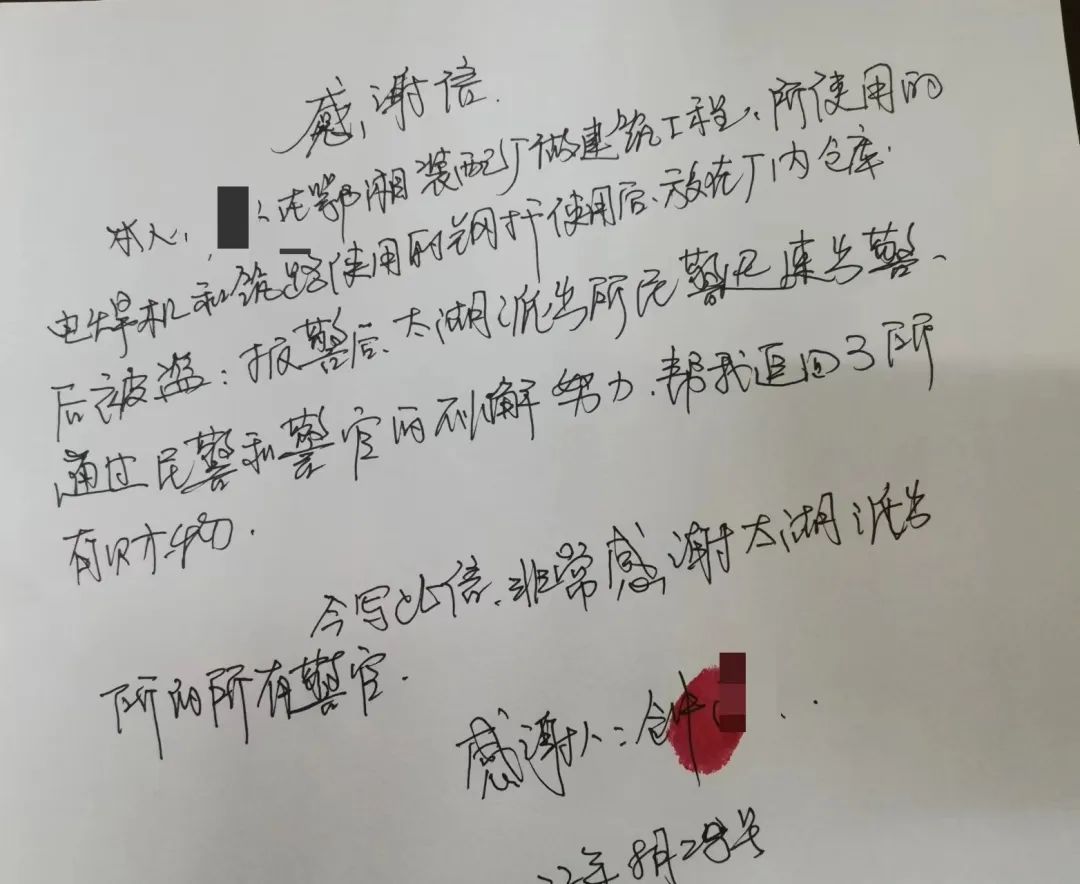 感谢信.
本人, 在鄂湘装配厂做建筑工程、所使用的
电焊机和筑路使用的钢扦使用后、放在厂内仓库.
后被盗:报警后、太湖派出所民警迅速出警、
通过民警和警官的不懈努力.帮我追回了所
有财物.
今写此信.非常感谢太湖派出
所的所有警官.
感谢人:
22年8月28号